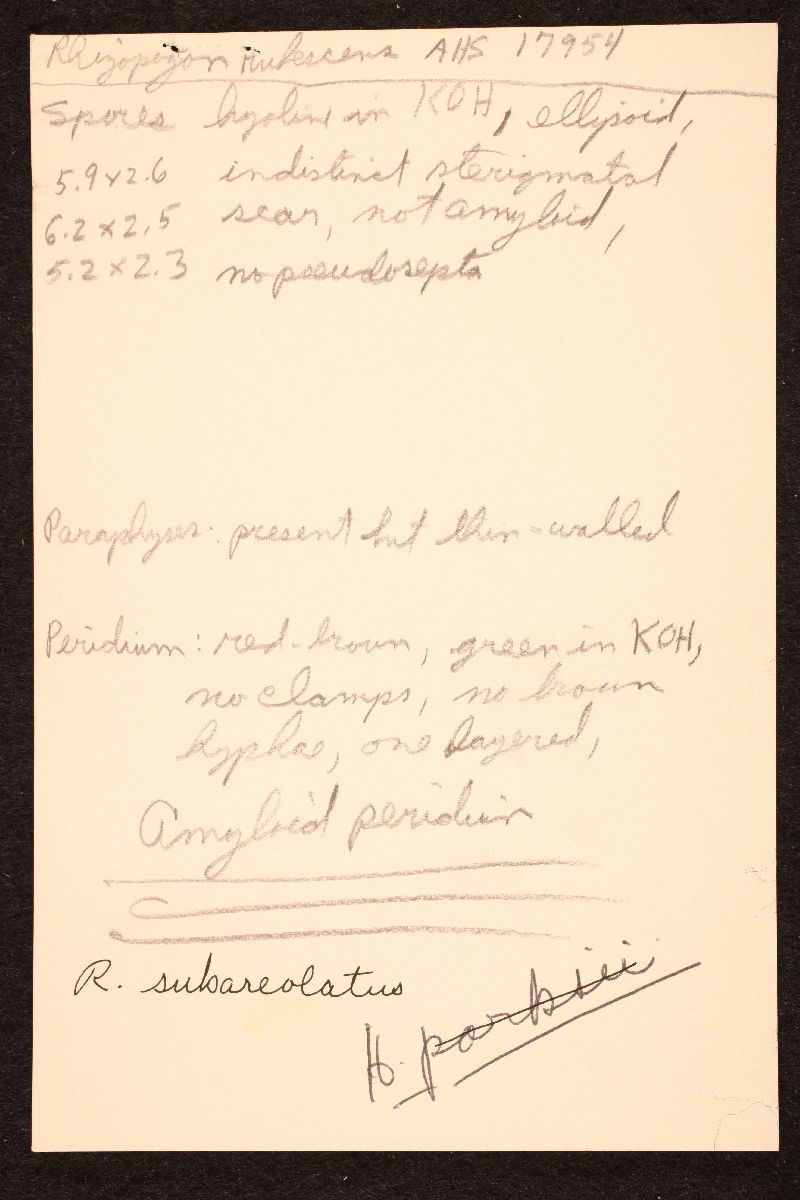 Rhizopogon rubescens AHS 17954
Spores hyalin in KOH, ellipsoid,
5.9 x 2.6 indistinct sterigmatal
6.2 x 2.5 scar, not amyloid,
5.2 x 2.3 no pseudosepta
Paraphyses: present but thin-walled
Peridium: red-brown, green in KOH,
no clamps, no brown
hyphae, one layered,
Amyloid peridium
R. subareolatus
H. parksii